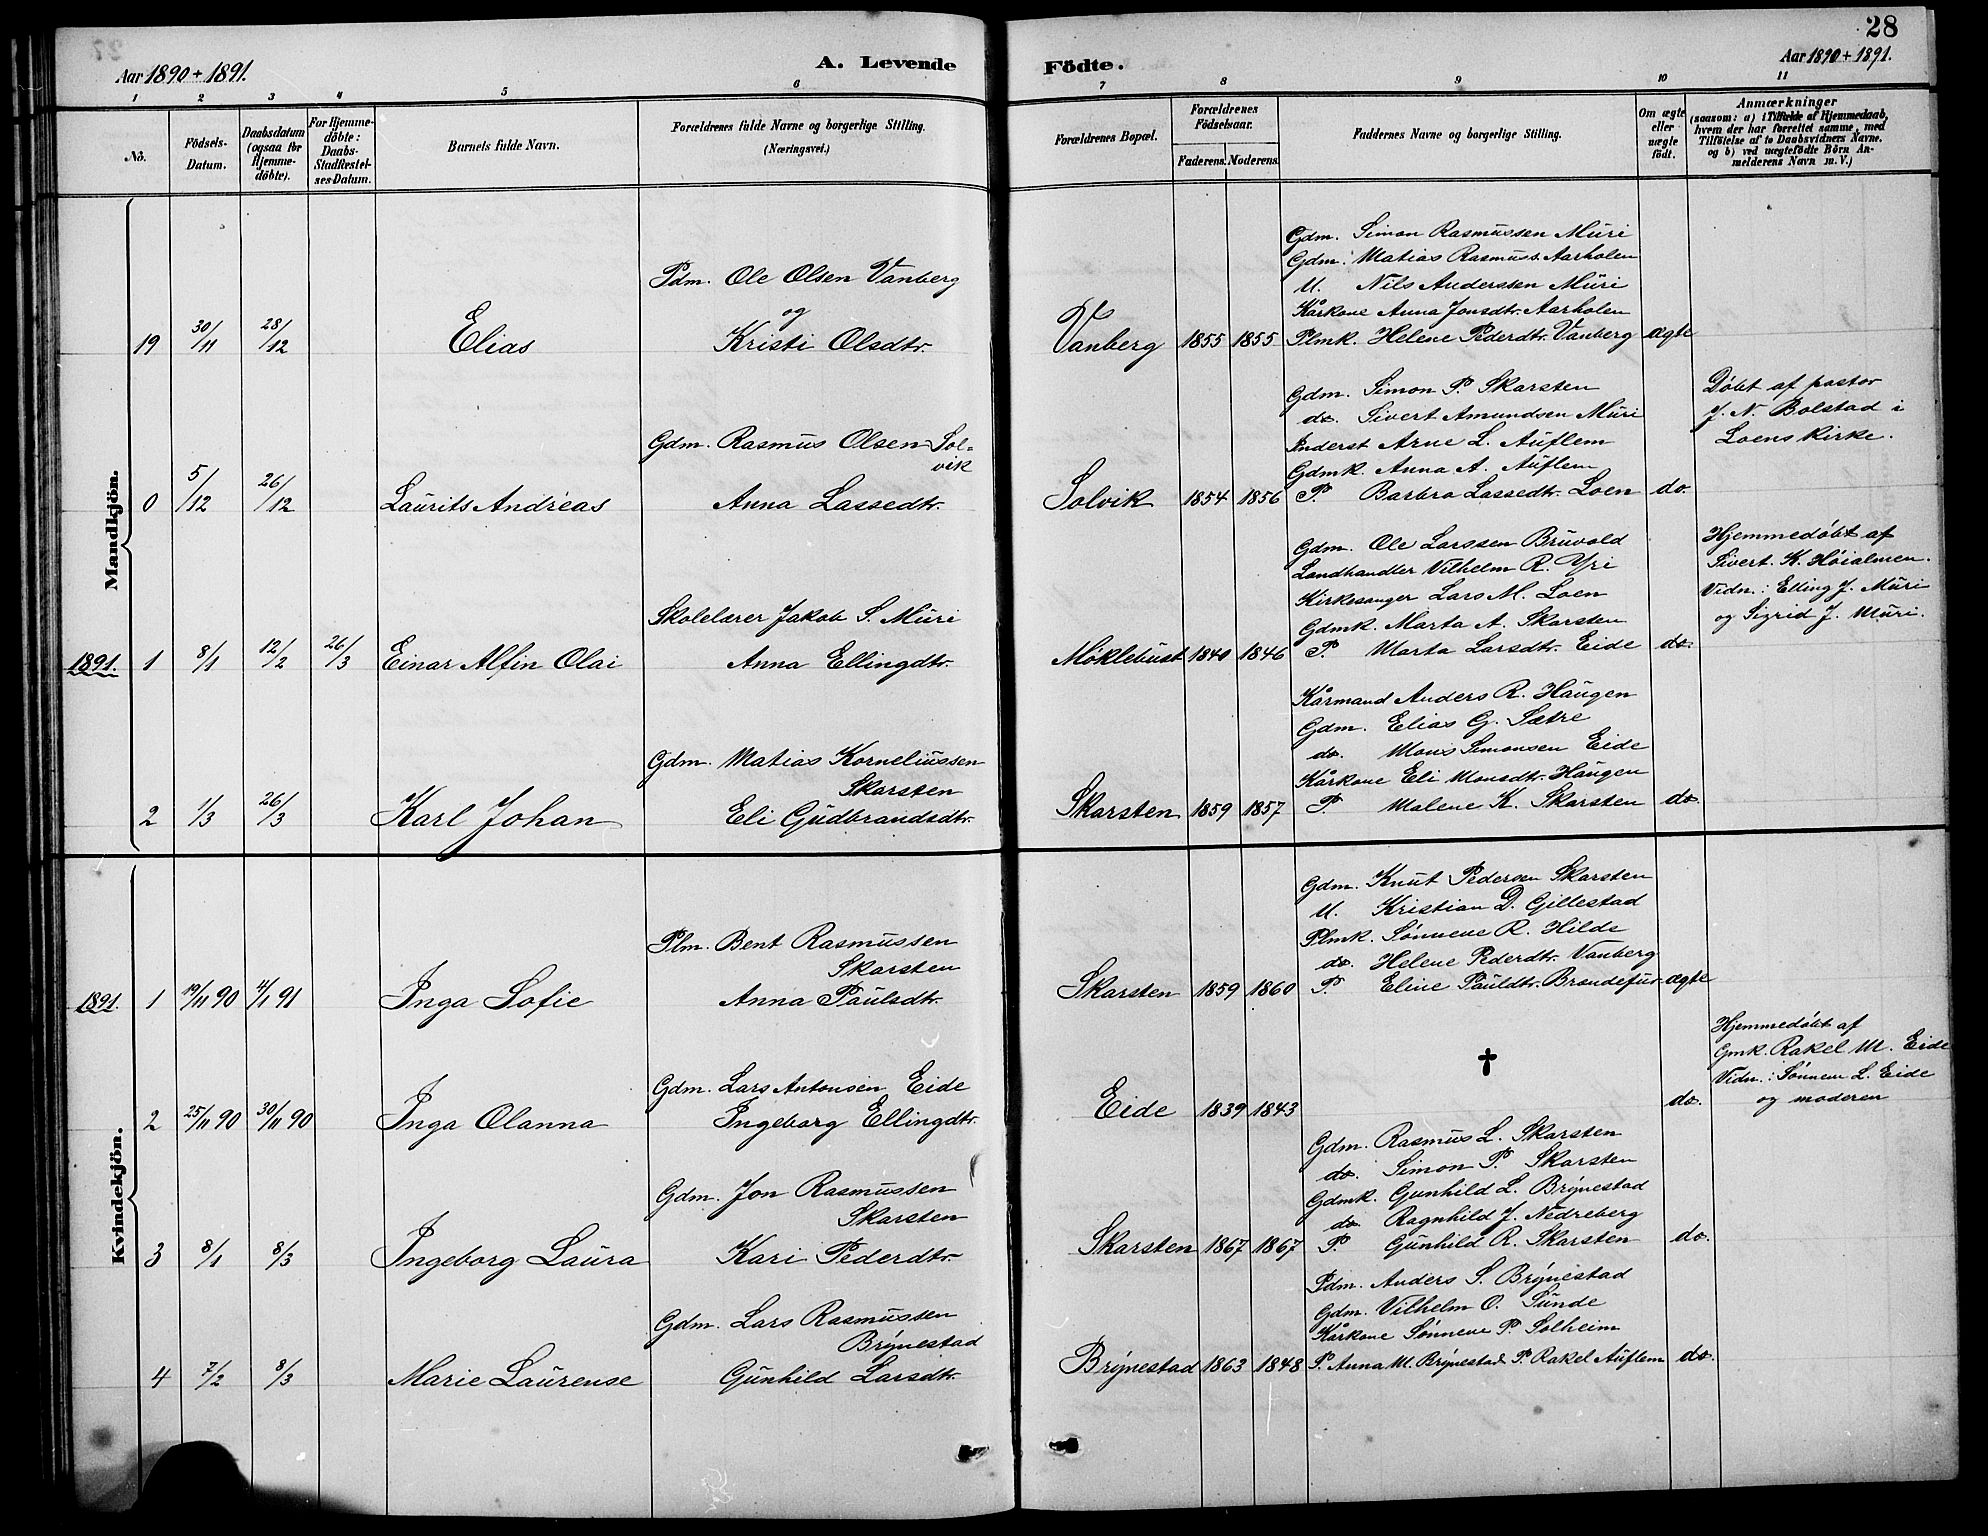 28
Aar 1890 + 1891.
A. Levende
Födte.
Aar 1890 + 1891.
1 2 3 4 5 6 7 8 9 10 11
No.
Födsels-Datum.
Daabsdatum (ogsaa for Hjemme-döbte).
For Hjemme-döbte: Daabs-Stadfæstel-ses-Datum.
Barnets fulde Navn.
Forældrenes fulde Navne og borgerlige Stilling.
(Næringsvei.)
Forældrenes Bopæl.
Forældrenes Födselsaar.
Faderens. Moderens.
Faddernes Navne og borgerlige Stilling.
Om ægte eller uægte födt.
Anmærkninger
(saasom: a) i Tilfælde af Hjemmedaab, hvem der har forrettet samme, med Tilföielse af to Daabsvidners Navne, og b) ved uægtefödte Börn An-melderens Navn m. V.)
Mandkjön.
Gdm. Simon Rasmussen Muri
Gdm. Matias Rasmuss. Aarholen
Pdm. Ole Olsen Vanberg
U. Nils Anderssen Muri
og
Kårkone Anna Jonsdtr. Aarholen
19 30/11 28/12 Elias Kristi Olsdtr. Vanberg 1855 1855 Plmk. Helene Pederdtr. Vanberg ægte
Gdm. Simon P. Skarsten
Døbt af pastor
do. Sivert Amundsen Muri
J. N. Bolstad i
Gdm. Rasmus Olsen Sol=
vik
Inderst Arne L. Auflem
Loens kirke.
Gdmk. Anna A. Auflem
0 5/12 26/12 Laurits Andreas Anna Lassedtr. Solvik 1854 1856 P. Barbro Lassedtr. Loen do.
Gdm. Ole Larssen Bruvold
Hjemmedøbt af
Landhandler Vilhelm R. Yri
Sivert K. Høialmen.
Kirkesanger Lars M. Loen
Vidn.: Elling J. Muri
Skolelærer Jakob S. Muri
Gdmk. Marta A. Skarsten
og Sigrid J. Muri.
1891. 1 8/1 12/2 26/3 Einar Alfin Olai Anna Ellingdtr. Møklebust 1840 1846 P. Marta Larsdtr. Eide do.
Kårmand Anders R. Haugen
Gdm. Elias G. Sætre
Gdm. Matias Korneliussen
Skarsten
do. Mons Simonsen Eide
Kårkone Eli Monsdtr. Haugen
2 1/3 26/3 Karl Johan Eli Gudbrandsdtr. Skarsten 1859 1857 P. Malene K. Skarsten do.
Kvindekjön.
Gdm. Knut Pedersen Skarsten
U. Kristian D. Gillestad
Plm. Bent Rasmussen
Skarsten
Plmk. Sønneve R. Hilde
do. Helene Pederdtr. Vanberg
1891. 1 19/11 90 4/1 91 Inga Sofie Anna Paulsdtr. Skarsten 1859 1860 P. Eline Pauldtr. Brandefur ægte
Hjemmedøbt af
Gmk. Rakel M. Eide
Gdm. Lars Antonsen Eide
†
Vidn.: Sønneve L. Eide
og moderen
2 25/11 90 30/11 90 Inga Olanna Ingeborg Ellingdtr. Eide 1839 1843 do.
Gdm. Rasmus L. Skarsten
do. Simon P. Skarsten
Gdm. Jon Rasmussen
Skarsten
Gdmk. Gunhild L. Brynestad
do. Ragnhild J. Nedreberg
3 8/1 8/3 Ingeborg Laura Kari Pederdtr. Skarsten 1867 1867 P. Gunhild R. Skarsten do.
Pdm. Anders S. Brynestad
Gdm. Lars Rasmussen
Brynestad
Gdm. Vilhelm O. Sunde
Kårkone Sønneve P. Solheim
4 7/2 8/3 Marie Laurense Gunhild Larsdtr. Brynestad 1863 1848 P. Anna M. Brynestad P. Rakel Auflem do.